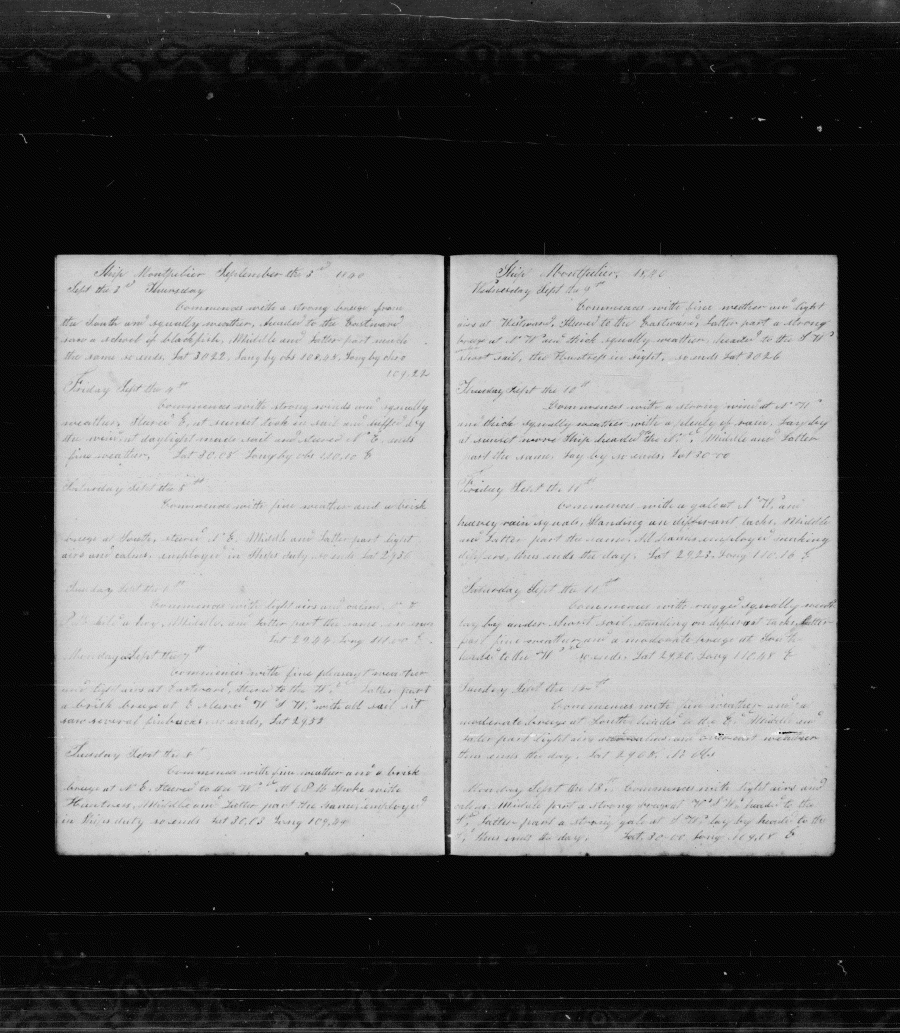 Ship Montpelier September the 3rd 1840
Sept the 3rd Thursday
Commences with a strong breeze from
the South and squally weather, headed to the Eastward
saw a school of blackfish, Middle and Latter part much
the same so ends. Lat 30.22, Long by obs 108.48. Long by chro
109.22
Friday Sept the 4th
Commences with strong winds and squally
weather, Steered E, at sunset took in sail and luffed by
the wind, at daylight made sail and steered N E. ends
fine weather, Lat 30.08 Long by obs 110.10 E
Saturday Sept the 5th
Commences with fine weather and a brisk
breeze at South, steered N E, Middle and Latter part light
airs and calms, employed in Ships duty, so ends Lat 29.36
Sunday Sept the 6th
Commences with light airs and calms,
Middle, and Latter part the same, so ends
Lat 29.44 Long 111.00 E
Monday Sept the 7th
Commences with fine pleasant weather
and light airs at Eastward, Steered to the Wd Latter part
a brisk breeze at E Steered W S W. with all sail set
saw several finbacks so ends, Lat 29.32
Tuesday Sept the 8th
Commences with fine weather and a brisk
breeze at N E. Steered to the Wd At 6 P M Spoke with
Huntress, Middle and Latter part the same, employed
in Ships duty so ends Lat 30.03 Long 109.24
Ship Montpelier, 1840
Wednesday Sept the 9th
Commences with fine weather and light
airs at Westward, Steered to the Eastward, Latter part a strong
breeze at N Wd and thick squally weather, headed to the S Wd
short sail, the Huntress in sight, so ends Lat 30.26
Thursday Sept the 10th
Commences with a strong wind at N W
and thick squally weather with a plenty of rain, Lay by
at sunset wore Ship headed the N, Middle and Latter
part the same, Lay by so ends, Lat 30.00
Friday Sept the 11th
Commences with a gale at N W. and
heavy rain squalls, Standing on different tacks, Middle
and Latter part the same, All hands employed making
thus ends the day. Lat 29.23. Long 110.16 E
Saturday Sept the 11th
Commences with rugged squally weath
lay by under short sail, standing on different tacks, Latter
part fine weather and a moderate breeze at South
headed to the Wd so ends. Lat 29.30. Long 110.48 E
Sunday Sept the 12th
Commences with fine weather and a
moderate breeze at South headed to the Ed Middle and
Latter part light airs and calms and overcast weather
thus ends the day. Lat 29.08. No Obs
Monday Sept the 13th. Commences with light airs and
calms. Middle part a strong breeze at W S W. headed to the
S, Latter part a strong gale at S W lay by headed to the
thus ends the day. Lat. 30.00 Long 109.08 E